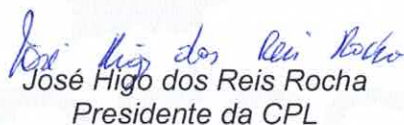 José Higo dos Reis Rocha
José Higo dos Reis Rocha
Presidente da CPL